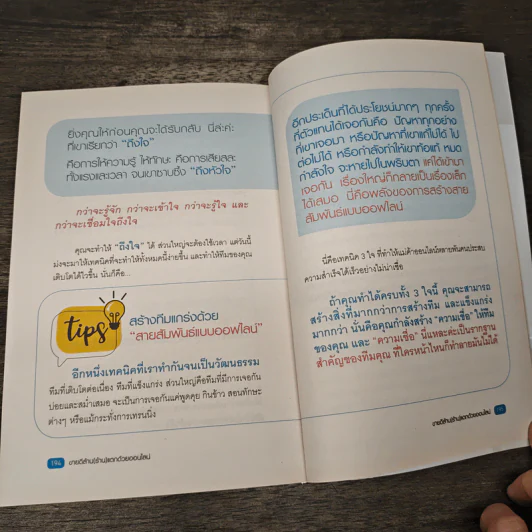 ยิ่งคุณให้ก่อนคุณจะได้รับกลับ นี่ล่ะค่ะ
ที่เขาเรียกว่า "ถึงใจ"
คือการให้ความรู้ ให้ทักษะ คือการเสียสละ
ทั้งแรงและเวลา จนเขาซาบซึ้ง "ถึงหัวใจ"
กว่าจะรู้จัก กว่าจะเข้าใจ กว่าจะรู้ใจ และ
กว่าจะเชื่อมใจถึงใจ
คุณจะทำให้ "ถึงใจ" ได้ ส่วนใหญ่จะต้องใช้เวลา แต่วันนี้
มุ่งจะมาให้เทคนิคที่จะทำให้ทั้งหมดนี้ง่ายขึ้น และทำให้ทีมของคุณ
เติบโตได้ไวขึ้น นั่นก็คือ...
tips
สร้างทีมแกร่งด้วย
"สายสัมพันธ์แบบออฟไลน์"
อีกหนึ่งเทคนิคที่เราทำกันจนเป็นวัฒนธรรม
ทีมที่เติบโตต่อเนื่อง ทีมที่แข็งแกร่ง ส่วนใหญ่คือทีมที่มีการเจอกัน
บ่อยและสม่ำเสมอ จะเป็นการเจอกันแค่พูดคุย กินข้าว สอนทักษะ
ต่างๆ หรือแม้กระทั่งการเทรนนิ่ง
194 ขายดีล้าน(ร้าน)แตกด้วยออนไลน์
อีกประเด็นที่ได้ประโยชน์มากๆ ทุกครั้ง
ที่ตัวแทนได้เจอกันคือ ปัญหาทุกอย่าง
ที่เขาเจอมา หรือปัญหาที่เขาแก้ไม่ได้ ไป
ต่อไม่ได้ หรือกำลังทำให้เขาท้อแท้ หมด
กำลังใจ จะหายไปในพริบตา แค่ได้เข้ามา
เจอกัน เรื่องใหญ่ก็กลายเป็นเรื่องเล็ก
ได้เสมอ นี่คือพลังของการสร้างสาย
สัมพันธ์แบบออฟไลน์
นี่คือเทคนิค 3 ใจ ที่ทำให้แม่ค้าออนไลน์หลายพันคนประสบ
ความสำเร็จได้เร็วอย่างไม่น่าเชื่อ
ถ้าคุณทำได้ครบทั้ง 3 ใจนี้ คุณจะสามารถ
สร้างสิ่งที่มากกว่าการสร้างทีม และแข็งแกร่ง
มากกว่า นั่นคือคุณกำลังสร้าง "ความเชื่อ" ให้ทีม
ของคุณ และ "ความเชื่อ" นี่แหละค่ะเป็นรากฐาน
สำคัญของทีมคุณ ที่ใครหน้าไหนก็ทำลายมันไม่ได้
ขายดีล้าน(ร้าน)แตกด้วยออนไลน์ 195